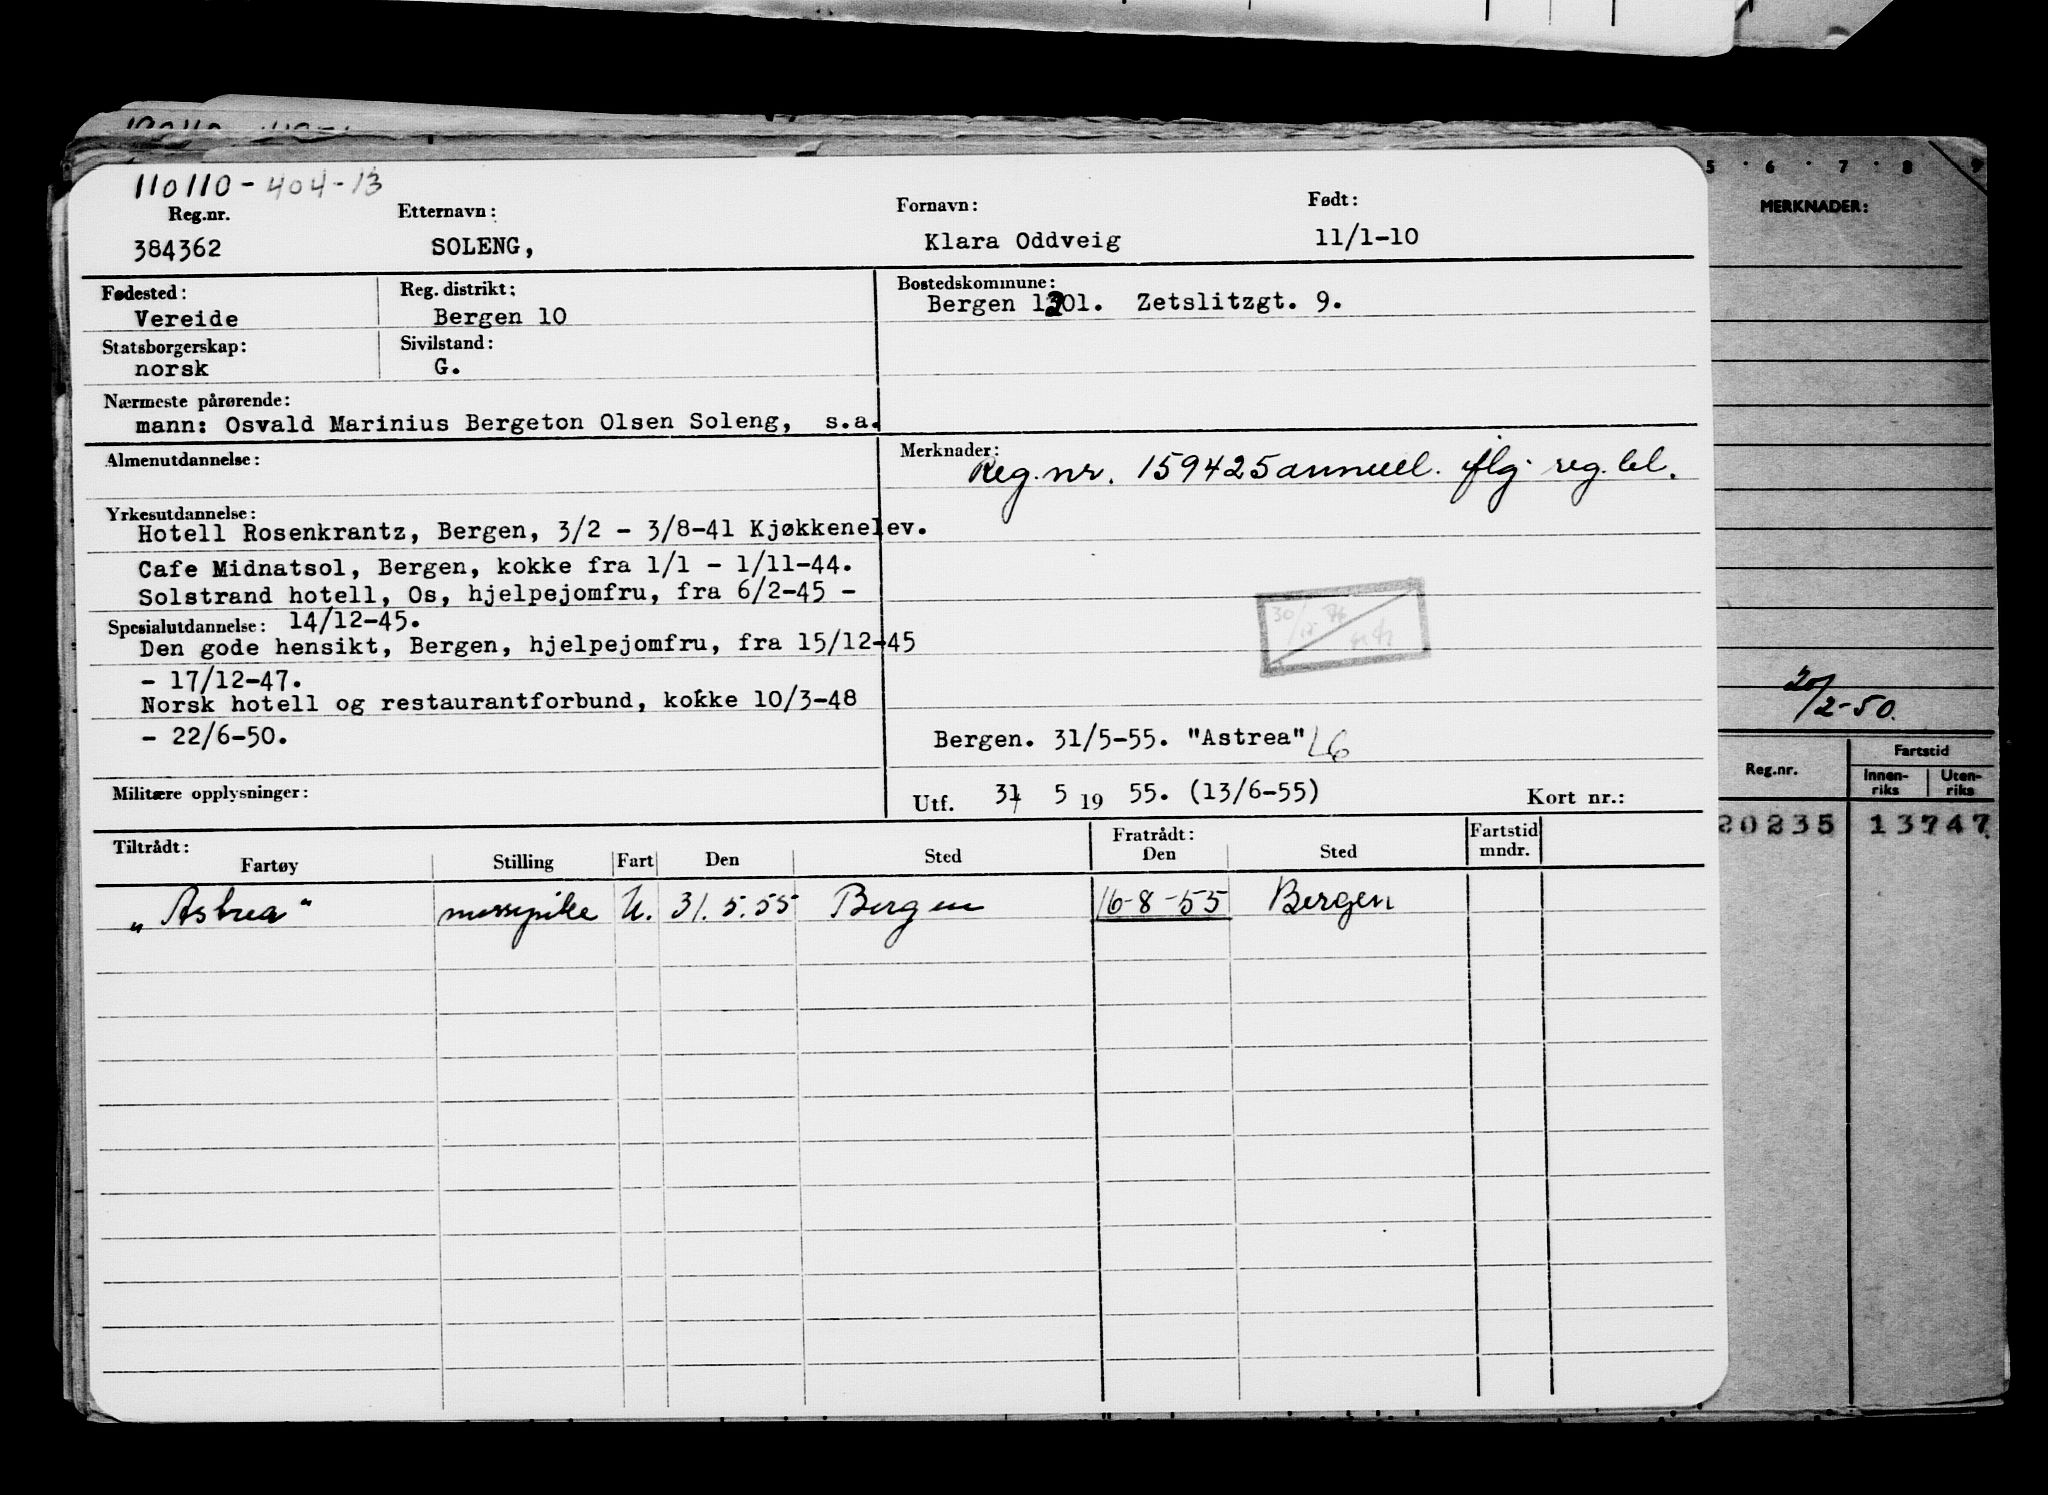 110110-404-13
Reg.nr. Etternavn: Fornavn: Født:
384362 SOLENG, Klara Oddveig 11/1-10
Fødested: Reg. distrikt: Bostedskommune:
Vereide Bergen 10 Bergen 1301. Zetslitzgt. 9.
Statsborgerskap: Sivilstand:
norsk G.
Nærmeste pårørende:
mann: Osvald Marinius Bergeton Olsen Soleng, s.a.
Almenutdannelse: Merknader:
Reg.nr. 159425 annuell. iflg. reg. bl.
Yrkesutdannelse:
Hotell Rosenkrantz, Bergen, 3/2 - 3/8-41 Kjøkkenelev.
Cafe Midnatsol, Bergen, kokke fra 1/1 - 1/11-44.
Solstrand hotell, Os, hjelpejomfru, fra 6/2-45 -
Spesialutdannelse: 14/12-45.
Den gode hensikt, Bergen, hjelpejomfru, fra 15/12-45
- 17/12-47.
Norsk hotell og restaurantforbund, kokke 10/3-48
- 22/6-50.
Bergen. 31/5-55. "Astrea" LG
Militære opplysninger: Utf. 31 5 19 55. (13/6-55) Kort nr.:
Tiltrådt: Fratrådt: Fartstid
Fartøy Stilling Fart Den Sted Den Sted mndr.
"Astrea" messepike U. 31.5.55 Bergen 16-8-55 Bergen
5 6 7 8 9
MERKNADER:
20/2-50.
Fartstid
Reg.nr. Innen- Uten-
riks riks
20235 13747